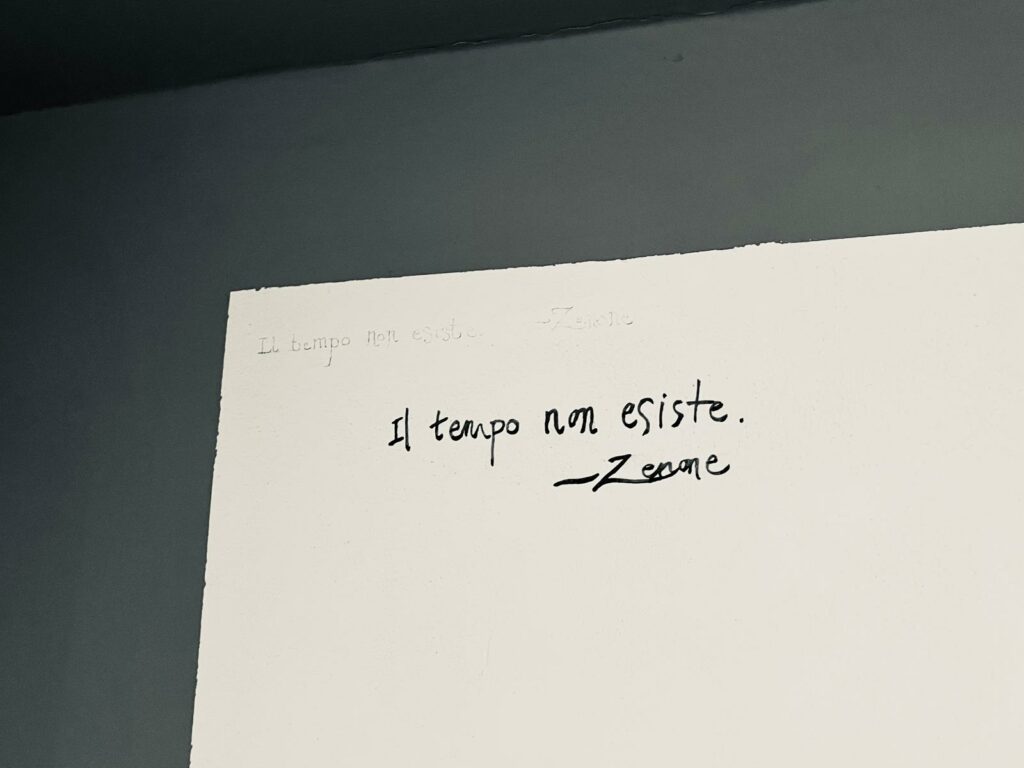 Il tempo non esiste. -Zenone
Il tempo non esiste.
-Zenone